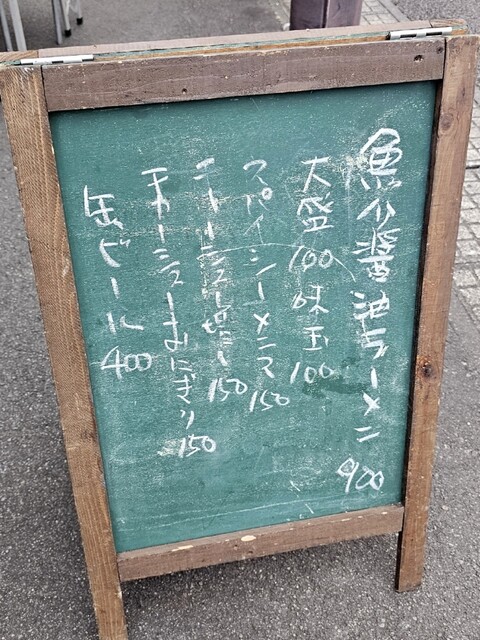 魚介醤油ラーメン 900
大盛 100 味玉 100
スパイシーメンマ 150
チャーシュー 150
チャーシューおにぎり 150
缶ビール 400